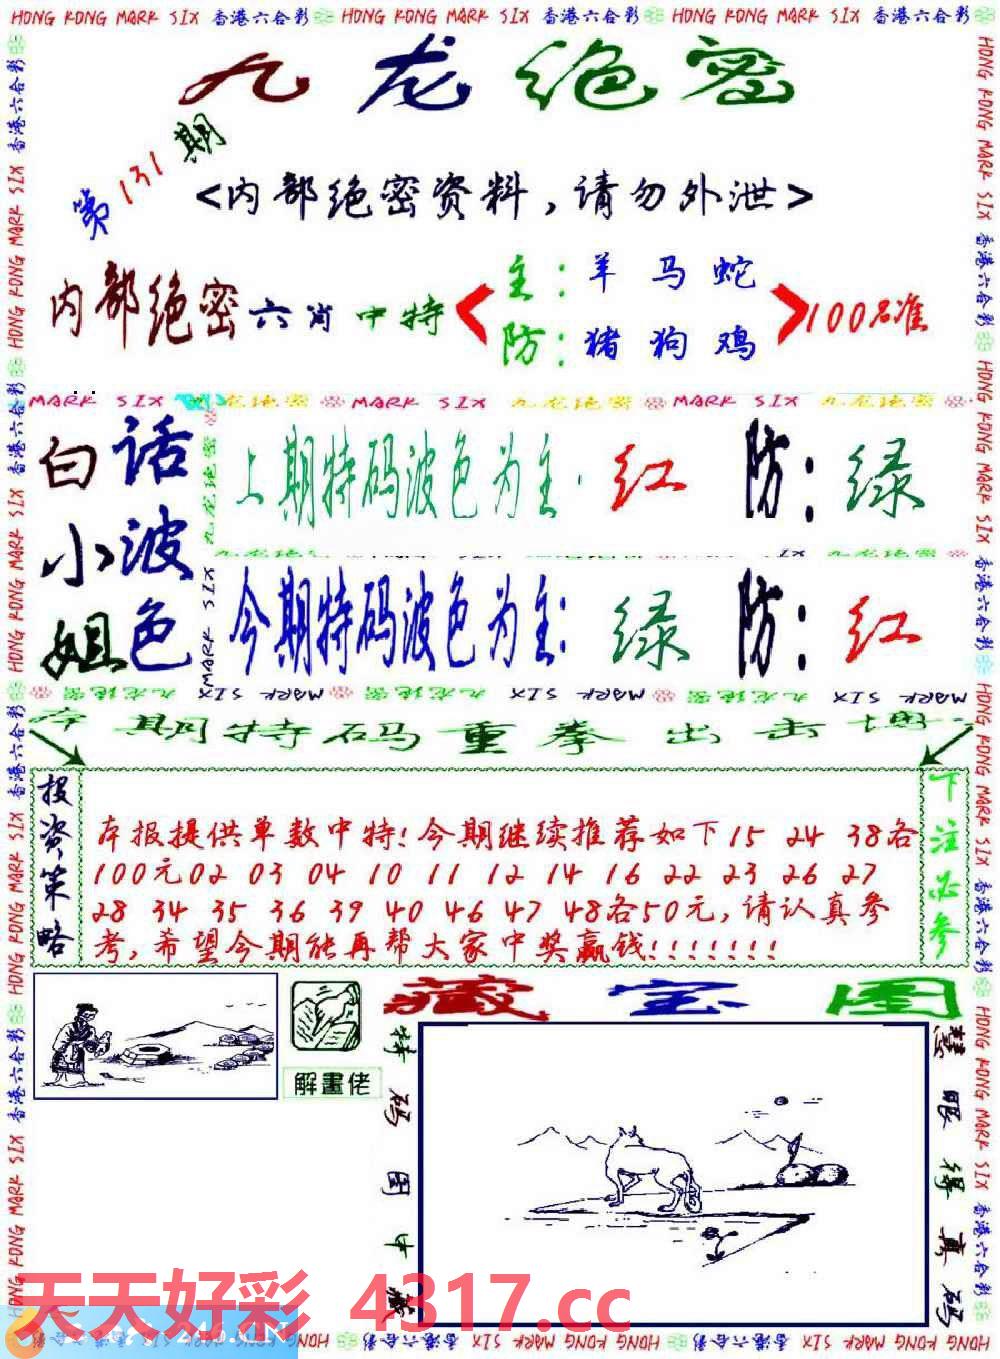 HONG KONG MARK SIX 香港六合彩 HONG KONG MARK SIX 香港六合彩 HONG KONG MARK SIX 香港六合彩
九龙绝密
第131期
<内部绝密资料,请勿外泄>
内部绝密六肖中特
主:羊马蛇
防:猪狗鸡
100%准
MARK SIX 九龙绝密 MARK SIX 九龙绝密 MARK SIX 九龙绝密
白小姐
话波色
上期特码波色为主:红 防:绿
今期特码波色为主:绿 防:红
本期特码重拳出击
投资策略
本报提供单数中特!今期继续推荐如下15 24 38各
100元02 03 04 10 11 12 14 16 22 23 26 27
28 34 35 36 39 40 46 47 48各50元,请认真参
考,希望今期能再帮大家中奖赢钱!!!!!!!
下注必参
解畫佬
藏宝图
特码图中藏
慧眼得真码
天天好彩 4317.cc
HONG KONG MARK SIX 香港六合彩